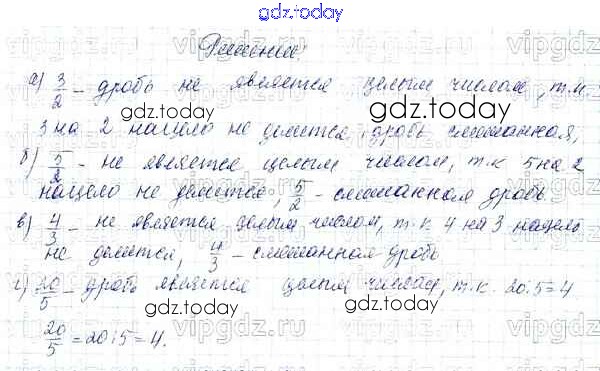 gdz.today
Решение:
а) 3/2 – дробь не является целым числом, т.к.
3 на 2 нацело не делится, дробь смешанная,
б) 5/2 – не является целым числом, т.к 5 на 2
нацело не делится, 5/2 – смешанная дробь
в) 4/3 – не является целым числом, т.к 4 на 3 нацело
не делится, 4/3 – смешанная дробь
г) 20/5 – дробь является целым числом, т.к. 20:5=4
20/5 = 20:5 = 4.
gdz.today
gdz.today
gdz.today
gdz.today
gdz.today
gdz.today